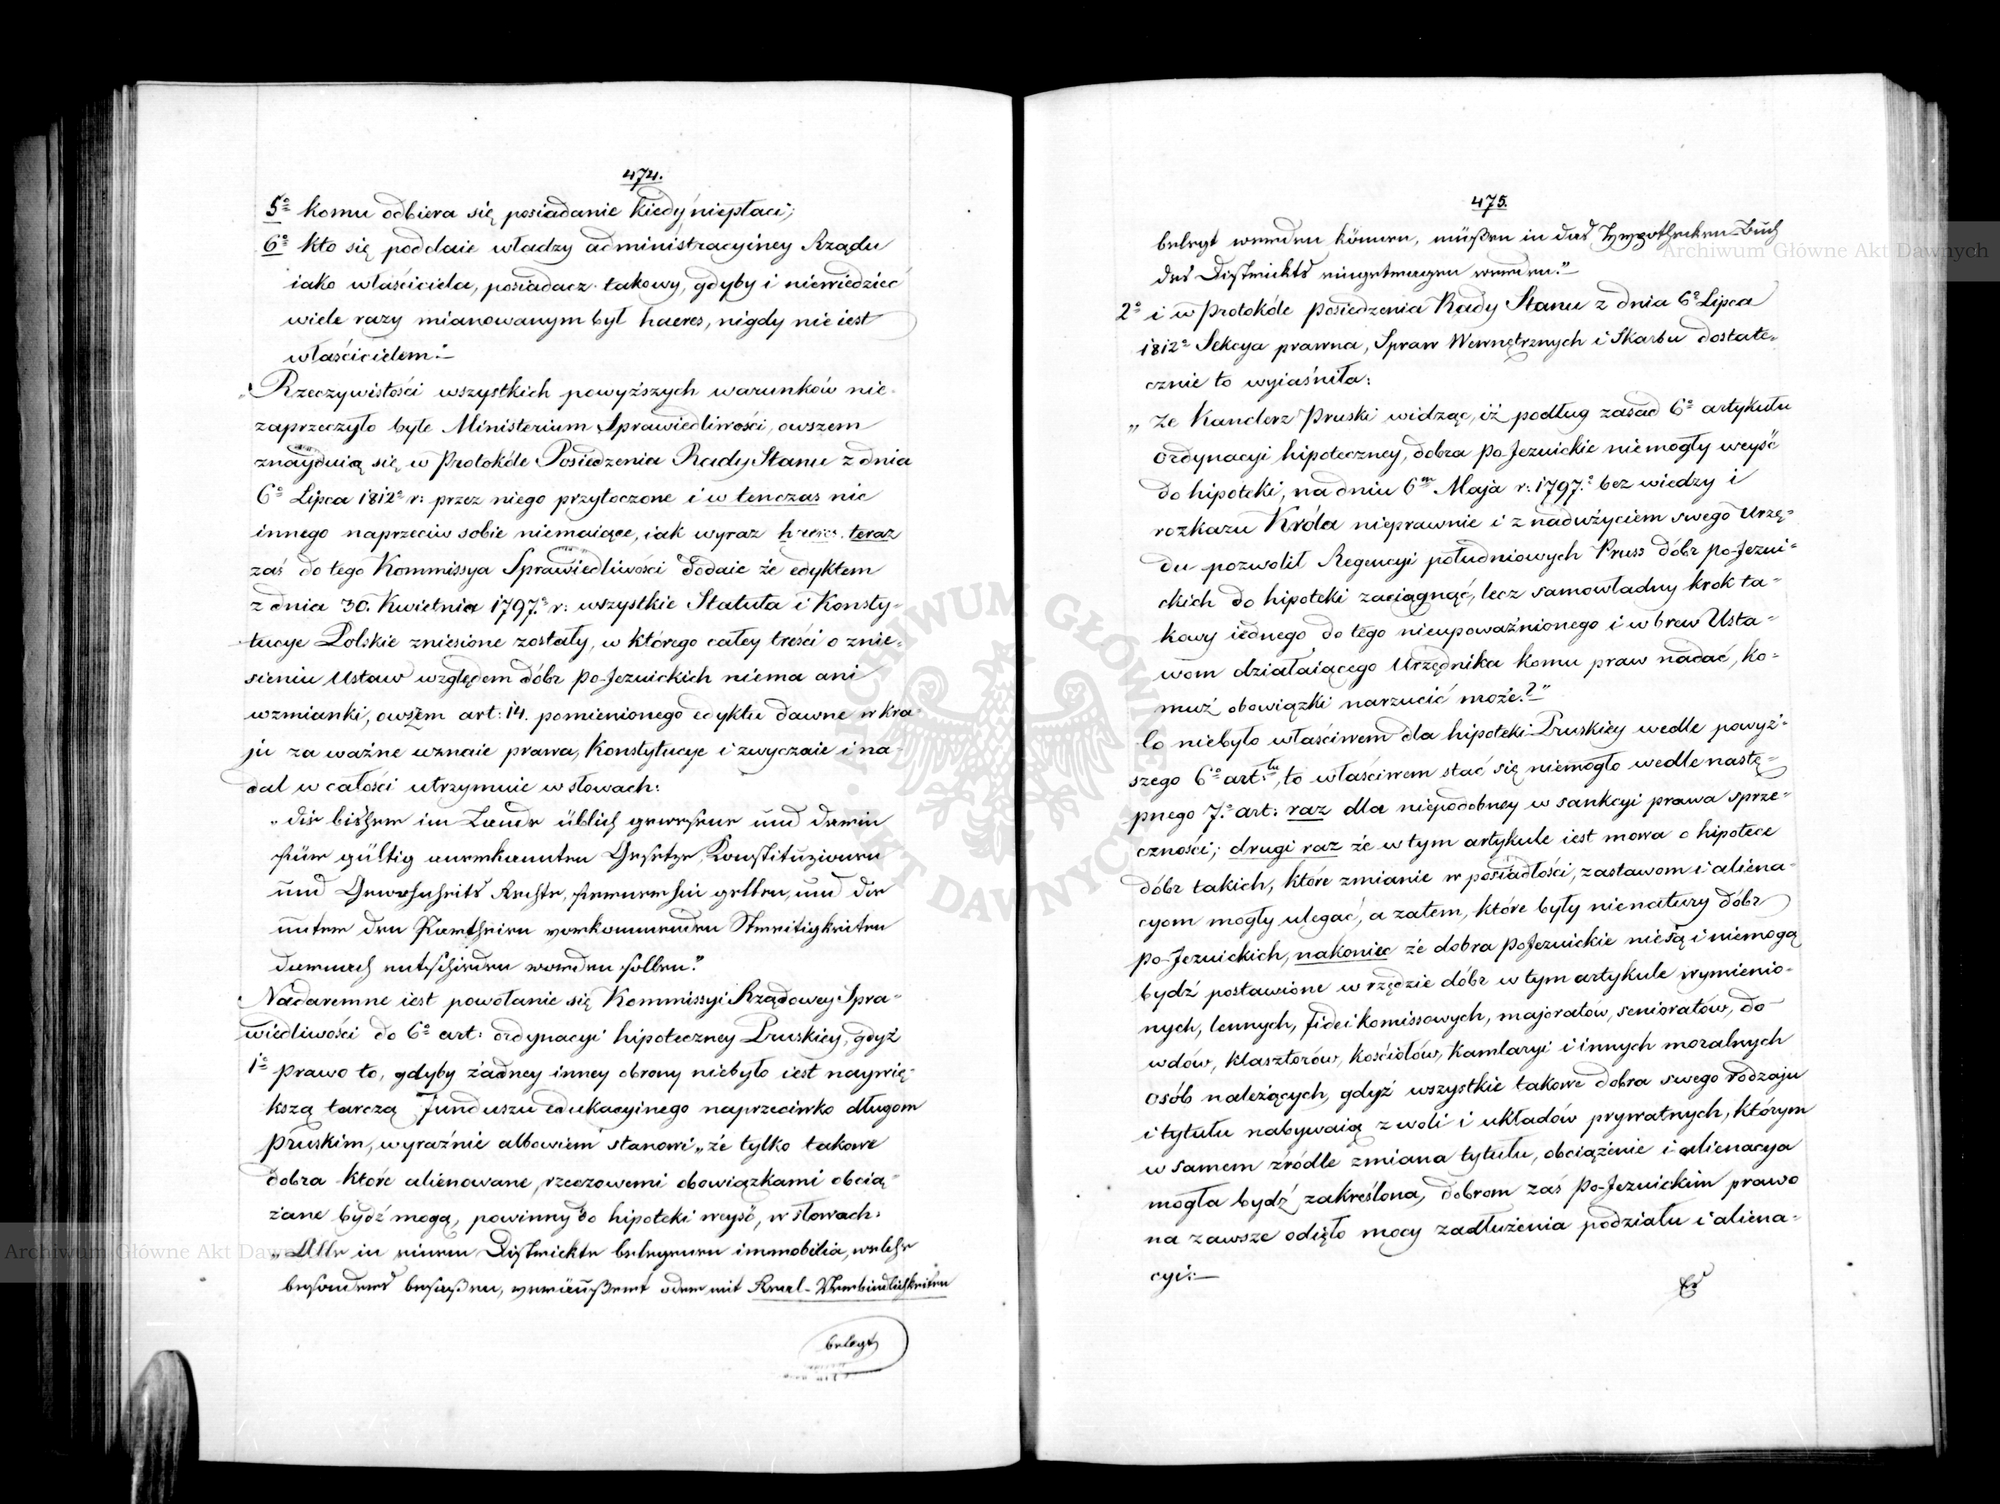 474.
5º komu odbiera się posiadanie kiedy niepłaci;
6º kto się poddaie władzy administracyiney Rządu
iako właściciela, posiadacz takowy, gdyby i niewiedzieć
wiele razy mianowanym był haeres, nigdy nie iest
właścicielem."—
"Rzeczywistości wszystkich powyższych warunków nie-
zaprzeczyło byłe Ministerium Sprawiedliwości, owszem
znayduią się w Protokóle Posiedzenia Rady Stanu z dnia
6º Lipca 1812º r: przez niego przytoczone i w tenczas nic
innego naprzeciw sobie niemaiące, iak wyraz haeres. teraz
zaś do tego Kommissya Sprawiedliwości dodaie że edyktem
z dnia 30. Kwietnia 1797º r: wszystkie Statuta i Konsty-
tucye Polskie zniesione zostały, w którego całey treści o znie-
sieniu Ustaw względem dóbr po-Jezuickich niema ani
wzmianki, owszem art: 14. pomienionego edyktu dawne w kra-
ju za ważne uznaie prawa, Konstytucye i zwyczaie i na-
dal w całości utrzymuie w słowach:
"die bisher im Lande üblich gewesene und darin
für gültig anerkannten Gesetze, Konstituzionen
und Gewohnheits Rechte, fernerhin gelten, und die
unter den Partheien vorkommenden Streitigkeiten
darnach entschieden werden sollen."
Nadaremne iest powołanie się Kommissyi Rządowey Spra-
wiedliwości do 6º art: ordynacyi hipoteczney Pruskiey, gdyż
1º prawo to, gdyby żadney inney obrony niebyło iest naywię-
kszą tarczą Funduszu edukacyinego naprzeciwko długom
Pruskim, wyraźnie albowiem stanowi "że tylko takowe
dobra które alienowane, rzeczowemi obowiązkami obcią-
żane bydź mogą, powinny do hipoteki weyść, w słowach:
"Alle in einem Districkte belegenen immobilia, welche
besonders besessen, veräußert oder mit Real-Verbindlichkeiten
belegt
475.
belegt werden können, müßen in das Hypotheken-Buch
des Districkts eingetragen werden."—
2º i w Protokóle Posiedzenia Rady Stanu z dnia 6º Lipca
1812º Sekcya prawna, Spraw Wewnętrznych i Skarbu dostate-
cznie to wyiaśniła:
"że Kanclerz Pruski widząc, iż podług zasad 6º artykułu
Ordynacyi hipoteczney, dobra po-Jezuickie niemogły weyść
do hipoteki, na dniu 6m Maja r: 1797º bez wiedzy i
rozkazu Króla nieprawnie i z nadużyciem swego Urzę-
du pozwolił Regencyi południowych Pruss dóbr po-Jezui-
ckich do hipoteki zaciągnąć, lecz samowładny krok ta-
kowy iednego do tego nieupoważnionego i wbrew Usta-
wom działaiącego Urzędnika komu praw nadać, ko-
muż obowiązki narzucić może?"—
Co niebyło właściwem dla hipoteki Pruskiey wedle powyż-
szego 6º art:tu, to właściwem stać się niemogło wedle nastę-
pnego 7º art: raz dla niepodobney w sankcyi prawa sprze-
czności; drugi raz że w tym artykule iest mowa o hipotece
dóbr takich, które zmianie w posiadłości, zastawom i aliena-
cyom mogły ulegać, a zatem, które były nienatury dóbr
po-Jezuickich, nakoniec że dobra poJezuickie niesą i niemogą
bydź postawione w rzędzie dóbr w tym artykule wymienio-
nych, lennych, fideikomissowych, majoratów, senioratów, do-
wdów, klasztorów, kościołów, Kamlaryi i innych moralnych
osób należących, gdyż wszystkie takowe dobra swego rodzaju
i tytułu nabywaią z woli i układów prywatnych, którym
w samem źródle zmiana tytułu, obciążenie i alienacya
mogła bydź zakreślona, dobrom zaś po-Jezuickim prawo
na zawsze odięło mocy zadłużenia podziału i aliena-
cyi:—
Archiwum Główne Akt Dawnych
Archiwum Główne Akt Dawnych
ARCHIWUM GŁÓWNE AKT DAWNYCH